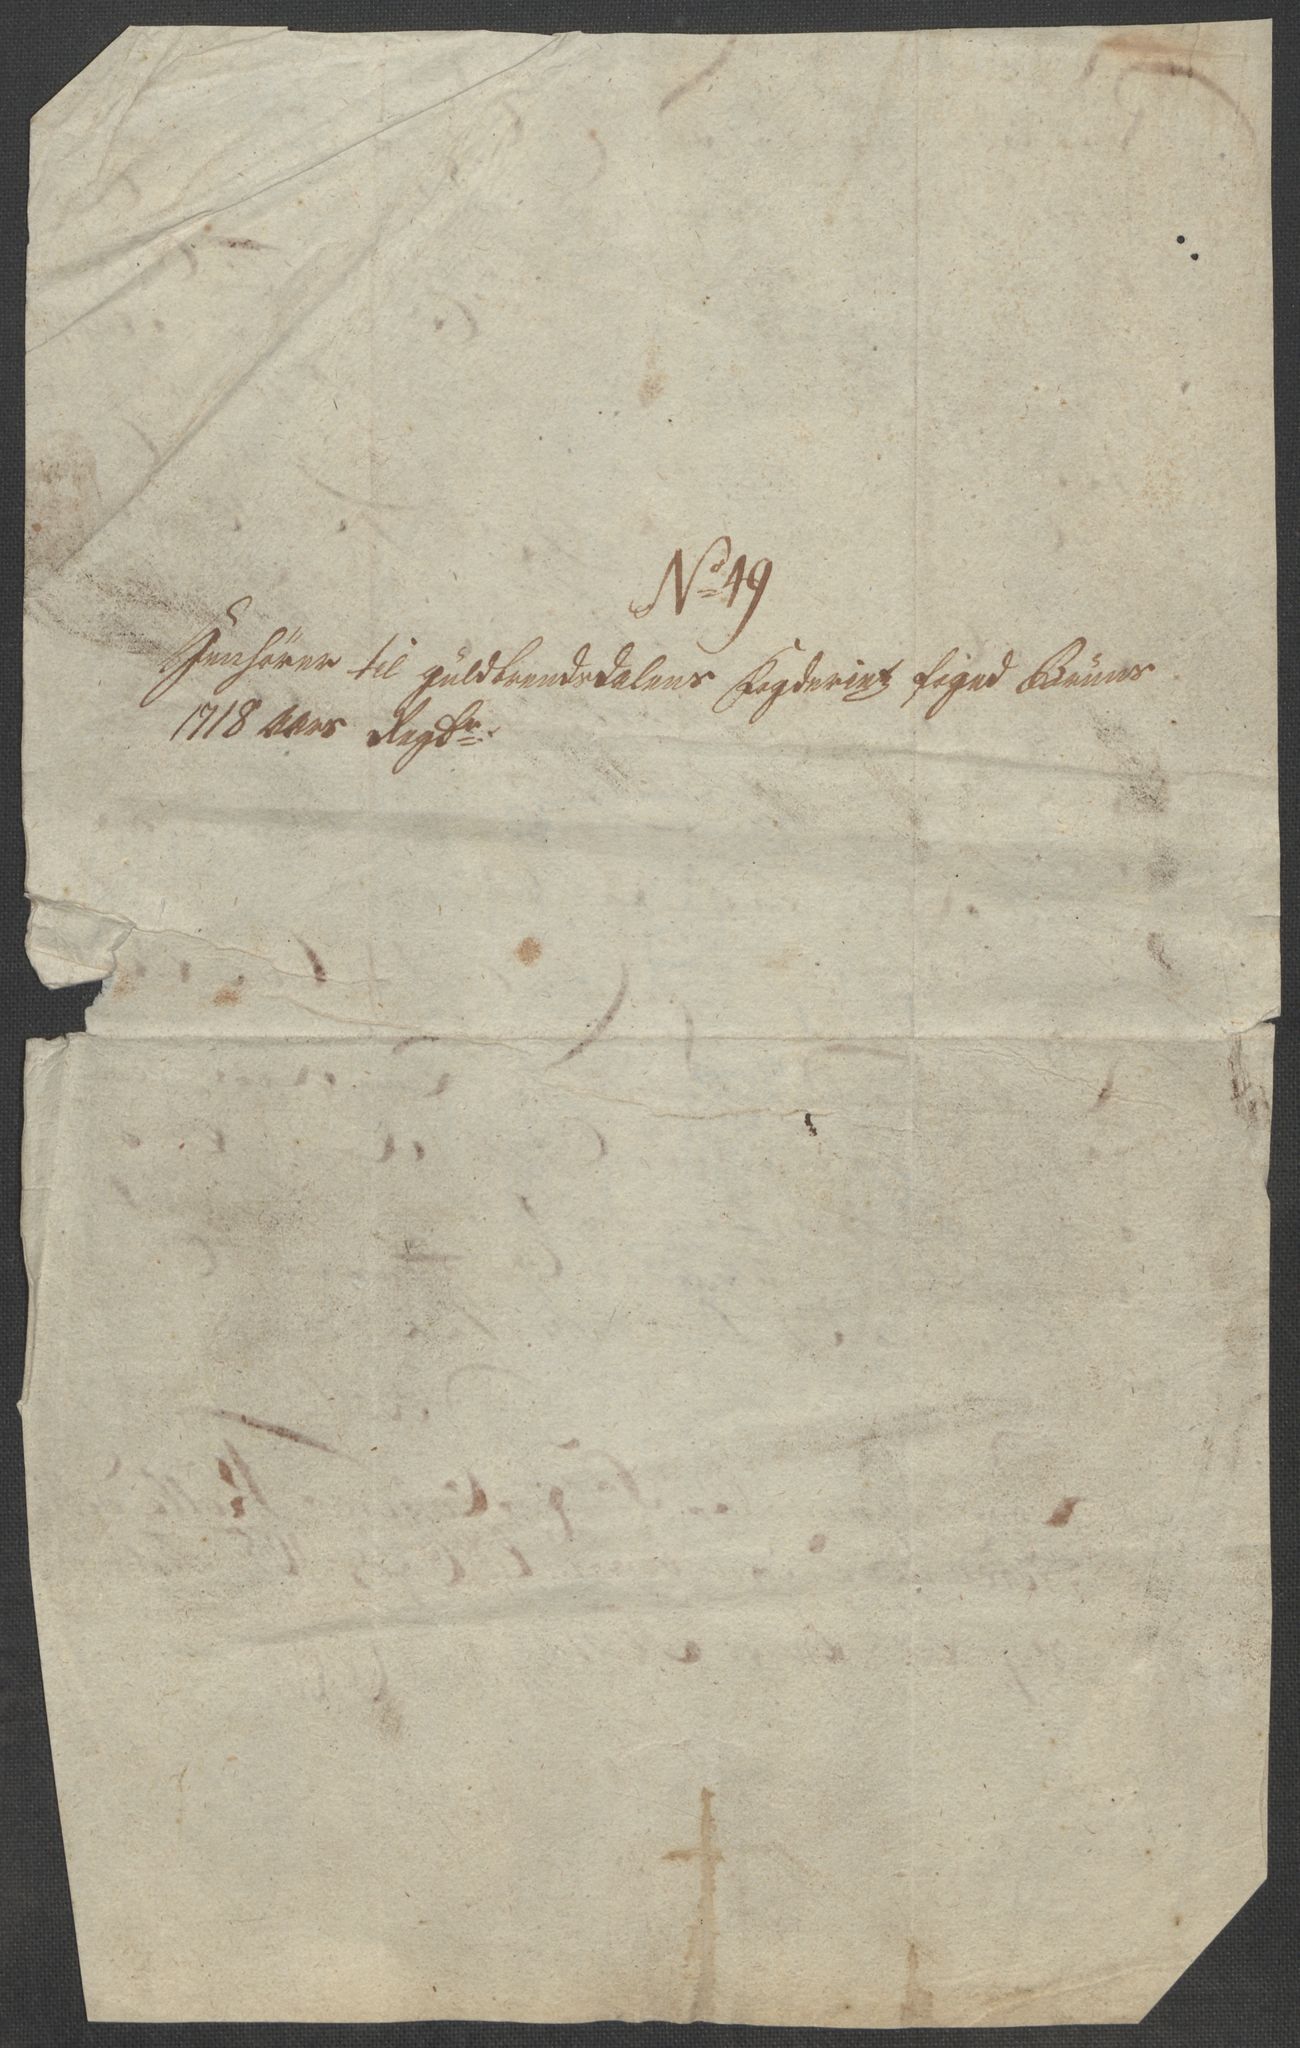 No 49
Henhører til Guldbrandsdalens Fogderiet foged Bruuns
1718 Aars Regsk: